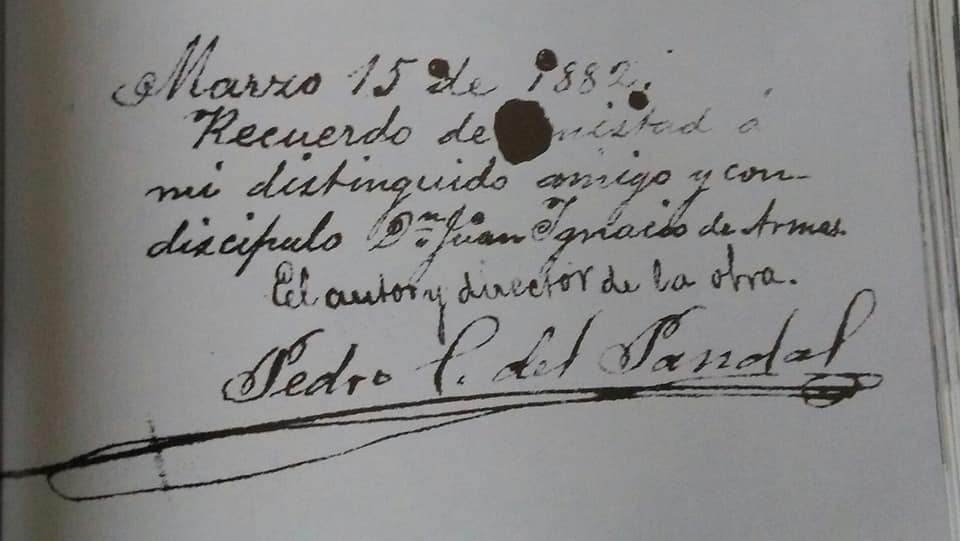 Marzo 15 de 1882.
Recuerdo de nistad á
mi distinguido amigo y con-
discípulo Dn. Juan Ignacio de Armas
El autor y director de la obra.
Pedro C. del Pandal